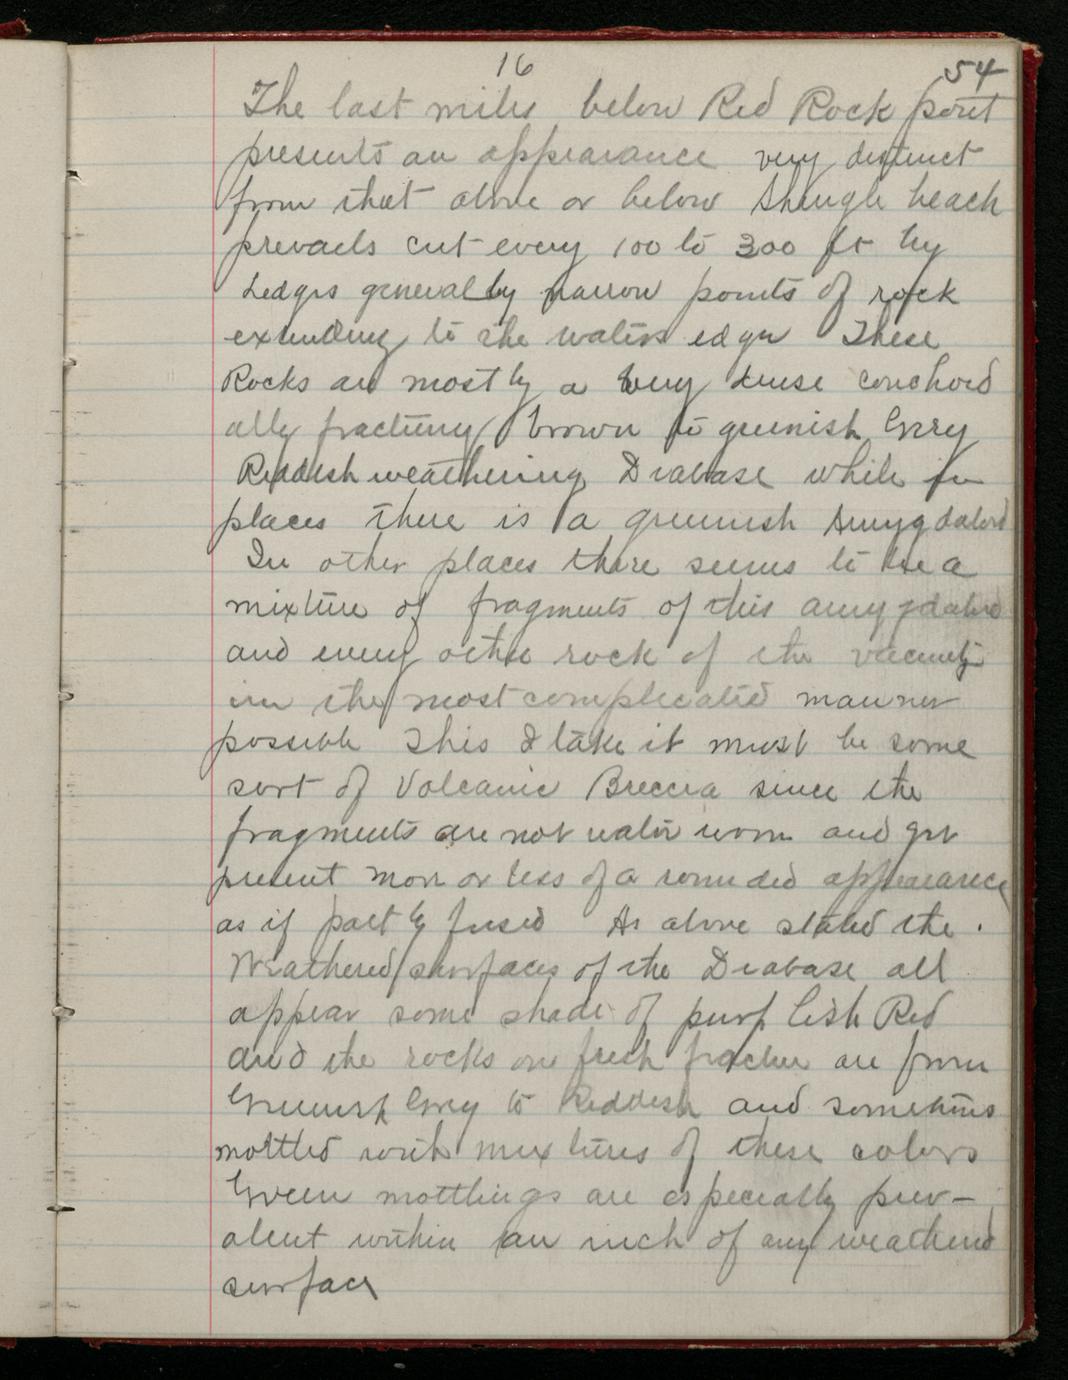 16
54
The last miles below Red Rock point
presents an appearance very distinct
from that above or below Shingle beach
prevails cut every 100 to 300 ft by
Ledges generally narrow points of rock
extending to the waters edge These
Rocks are mostly a very dense conchoid
ally fracturing brown to greenish Grey
Reddish weathering Diabase while in
places there is a greenish Amygdaloid
In other places there seems to be a
mixture of fragments of this amygdaloid
and every other rock of the vicinity
in the most complicated manner
possible This I take it must be some
sort of Volcanic Breccia since the
fragments are not water worn and yet
present more or less of a rounded appearance
as if partly fused As above stated the
Weathered surfaces of the Diabase all
appear some shade of purplish Red
and the rocks on fresh fracture are from
Greenish Grey to Reddish and sometimes
mottled with mixtures of these colors
Green mottlings are especially prev-
alent within an inch of any weathered
surface